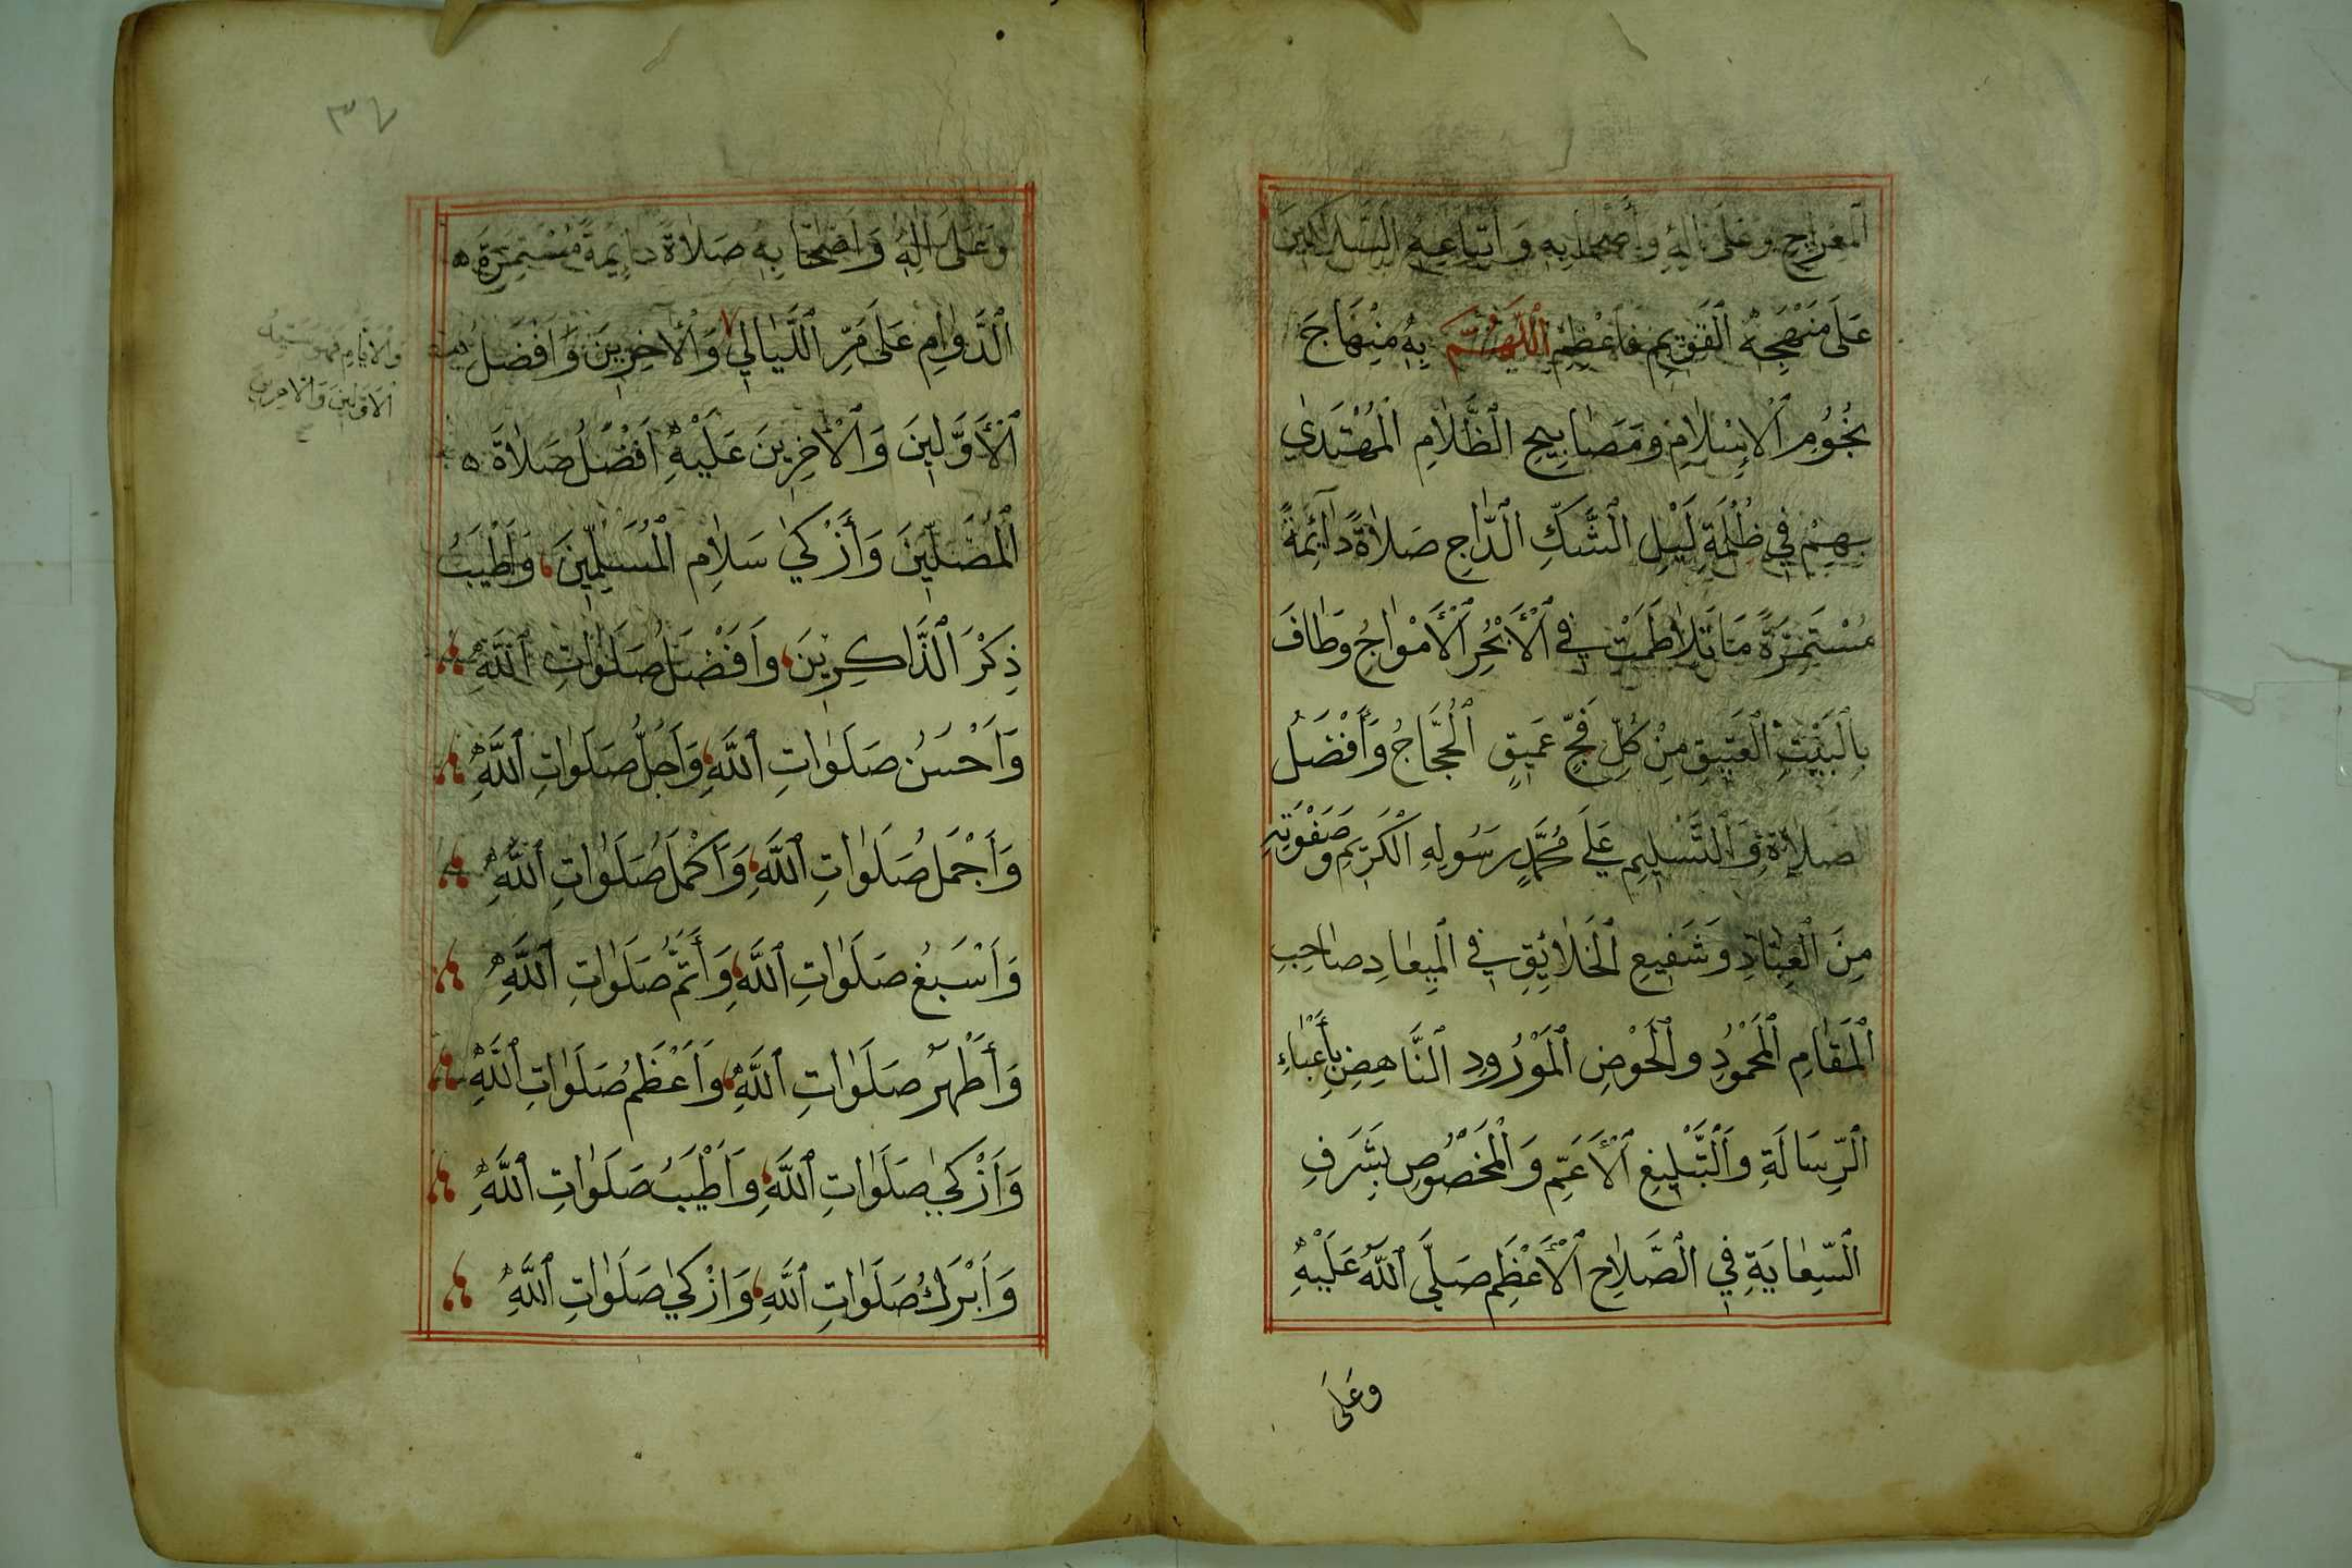 المعراج وعلى اله وأصحابه واتباعه السالكين
عَلَى مَنْهَجِهِ الْقَوِيمِ فَاعْظِمْ اللَّهُمَّ بِهِ مِنْهَاجَ
نُجُومِ الْإِسْلَامِ وَمَصَابِيحِ الظَّلَامِ الْمُهْتَدَى
بِهِمْ فِي ظُلْمَةِ لَيْلِ الشَّكِّ الدَّاجِ صَلَاةً دَائِمَةً
مُسْتَمِرَّةً مَا تَلَاطَمَتْ فِي الْأَبْحُرِ الْأَمْوَاجُ وَطَافَ
بِالْبَيْتِ الْعَتِيقِ مِنْ كُلِّ فَجٍّ عَمِيقٍ الْحُجَّاجُ وَأَفْضَلُ
صَلَاةٍ وَالتَّسْلِيمِ عَلَى مُحَمَّدٍ رَسُولِهِ الْكَرِيمِ وَصَفْوَتِهِ
مِنَ الْعِبَادِ وَشَفِيعِ الْخَلَائِقِ فِي الْمِيعَادِ صَاحِبِ
الْمَقَامِ الْمَحْمُودِ وَالْحَوْضِ الْمَوْرُودِ النَّاهِضِ بِأَعْبَاءِ
الرِّسَالَةِ وَالتَّبْلِيغِ الْأَعَمِّ وَالْمَخْصُوصِ بِشَرَفِ
السِّعَايَةِ فِي الصَّلَاحِ الْأَعْظَمِ صَلَّى اللَّهُ عَلَيْهِ
وَعَلَى
٣٧
وَعَلَى الِهِ وَاصْحَابِهِ صَلَاةً دَايِمَةً مُسْتَمِرَةَ ه
الدَّوَامِ عَلَى مَرِّ اللَّيَالِي ٧ وَالْأَخِرِينَ وَاَفْضَلُ
والايام
الاولين والاخرين
الْأَوَّلِينَ وَالْأَخِرِينَ عَلَيْهِ اَفْضَلُ صَلَاةَ ه
الْمُصَلِّينَ وَأَزْكَى سَلَامِ الْمُسَلِّمِينَ، وَاَطْيَبُ
ذِكْرَ الذَّاكِرِينَ، وَاَفْضَلُ صَلَوَاتِ اللَّهِ
وَاَحْسَنُ صَلَوَاتِ اللَّهِ، وَاَجَلُّ صَلَوَاتِ اللَّهِ
وَاَجْمَلُ صَلَوَاتِ اللَّهِ، وَاَكْمَلُ صَلَوَاتِ اللَّهِ
وَاَسْبَغُ صَلَوَاتِ اللَّهِ، وَأَتَمُّ صَلَوَاتِ اللَّهِ
وَأَطْهَرُ صَلَوَاتِ اللَّهِ، وَاَعْظَمُ صَلَوَاتِ اللَّهِ
وَاَزْكَى صَلَوَاتِ اللَّهِ، وَاَطْيَبُ صَلَوَاتِ اللَّهِ
وَاَبْرَكُ صَلَوَاتِ اللَّهِ، وَازْكَى صَلَوَاتِ اللَّهِ